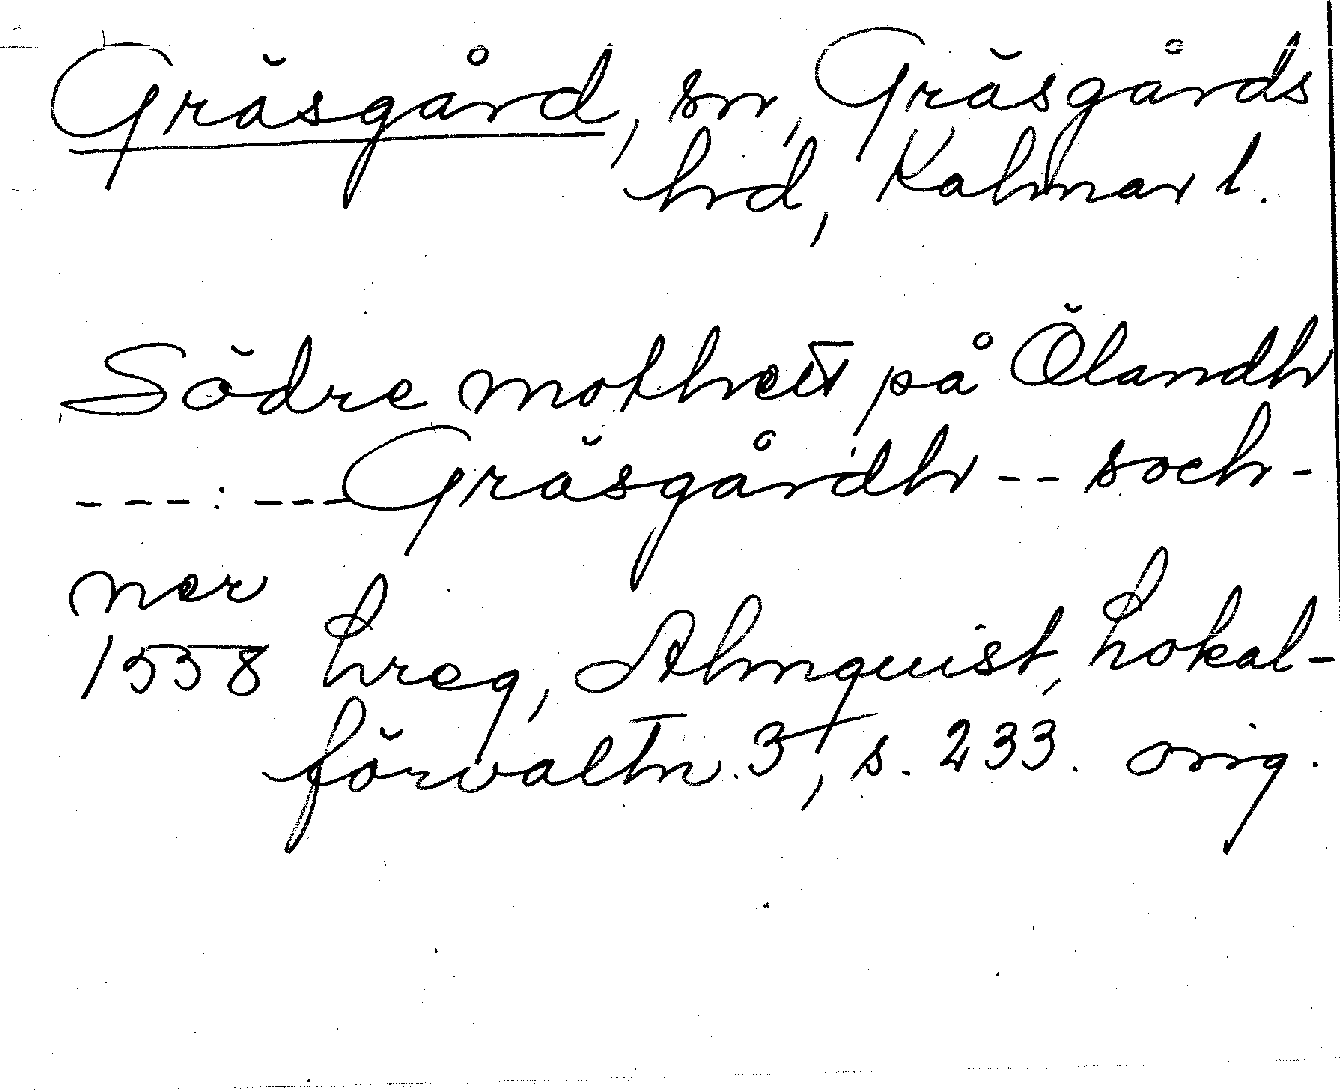 Gräsgård, sn, Gräsgårds
hd, Kalmar l.
Södre mothett på Ölandh
---:---Gräsgårdh -- soch-
ner
1558 Lreg, Almquist, Lokal-
förvaltn. 3, s. 233. orig.